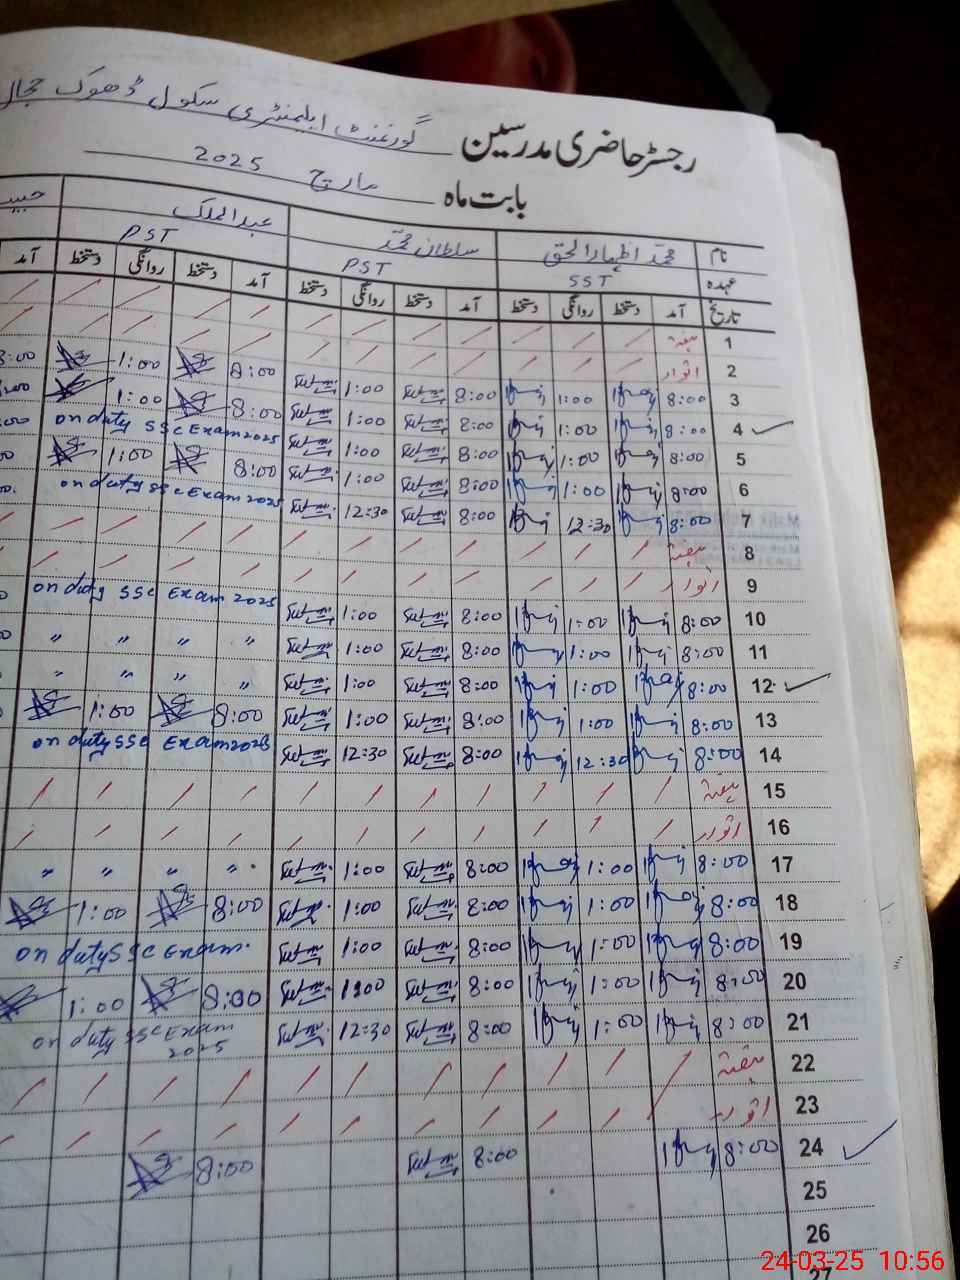 رجسٹر حاضری مدرسین گورنمنٹ ایلیمنٹری سکول ڈھوک
بابت ماہ مارچ 2025
نام محمد اظہارالحق سلطان محمد عبدالملک
عہدہ SST PST PST
تاریخ آمد دستخط روانگی دستخط آمد دستخط روانگی دستخط آمد دستخط روانگی دستخط آمد
1 ہفتہ
2 اتوار
3 8:00 1:00 8:00 1:00 8:00 1:00 8:00
4 8:00 1:00 8:00 1:00 8:00 1:00
5 8:00 1:00 8:00 1:00 on duty SSC Exam 2025
6 8:00 1:00 8:00 1:00 8:00 1:00
7 8:00 12:30 8:00 12:30 on duty SSC Exam 2025
8 ہفتہ
9 اتوار
10 8:00 1:00 8:00 1:00 on duty SSC Exam 2025
11 8:00 1:00 8:00 1:00 " " " "
12 8:00 1:00 8:00 1:00 " " " "
13 8:00 1:00 8:00 1:00 8:00 1:00
14 8:00 12:30 8:00 12:30 on duty SSC Exam 2025
15 ہفتہ
16 اتوار
17 8:00 1:00 8:00 1:00 " " " "
18 8:00 1:00 8:00 1:00 8:00 1:00
19 8:00 1:00 8:00 1:00 on duty SSC Exam.
20 8:00 1:00 8:00 1:00 8:00 1:00
21 8:00 1:00 8:00 12:30 on duty SSC Exam 2025
22 ہفتہ
23 اتوار
24 8:00 8:00 8:00
25
26
27
24-03-25 10:56